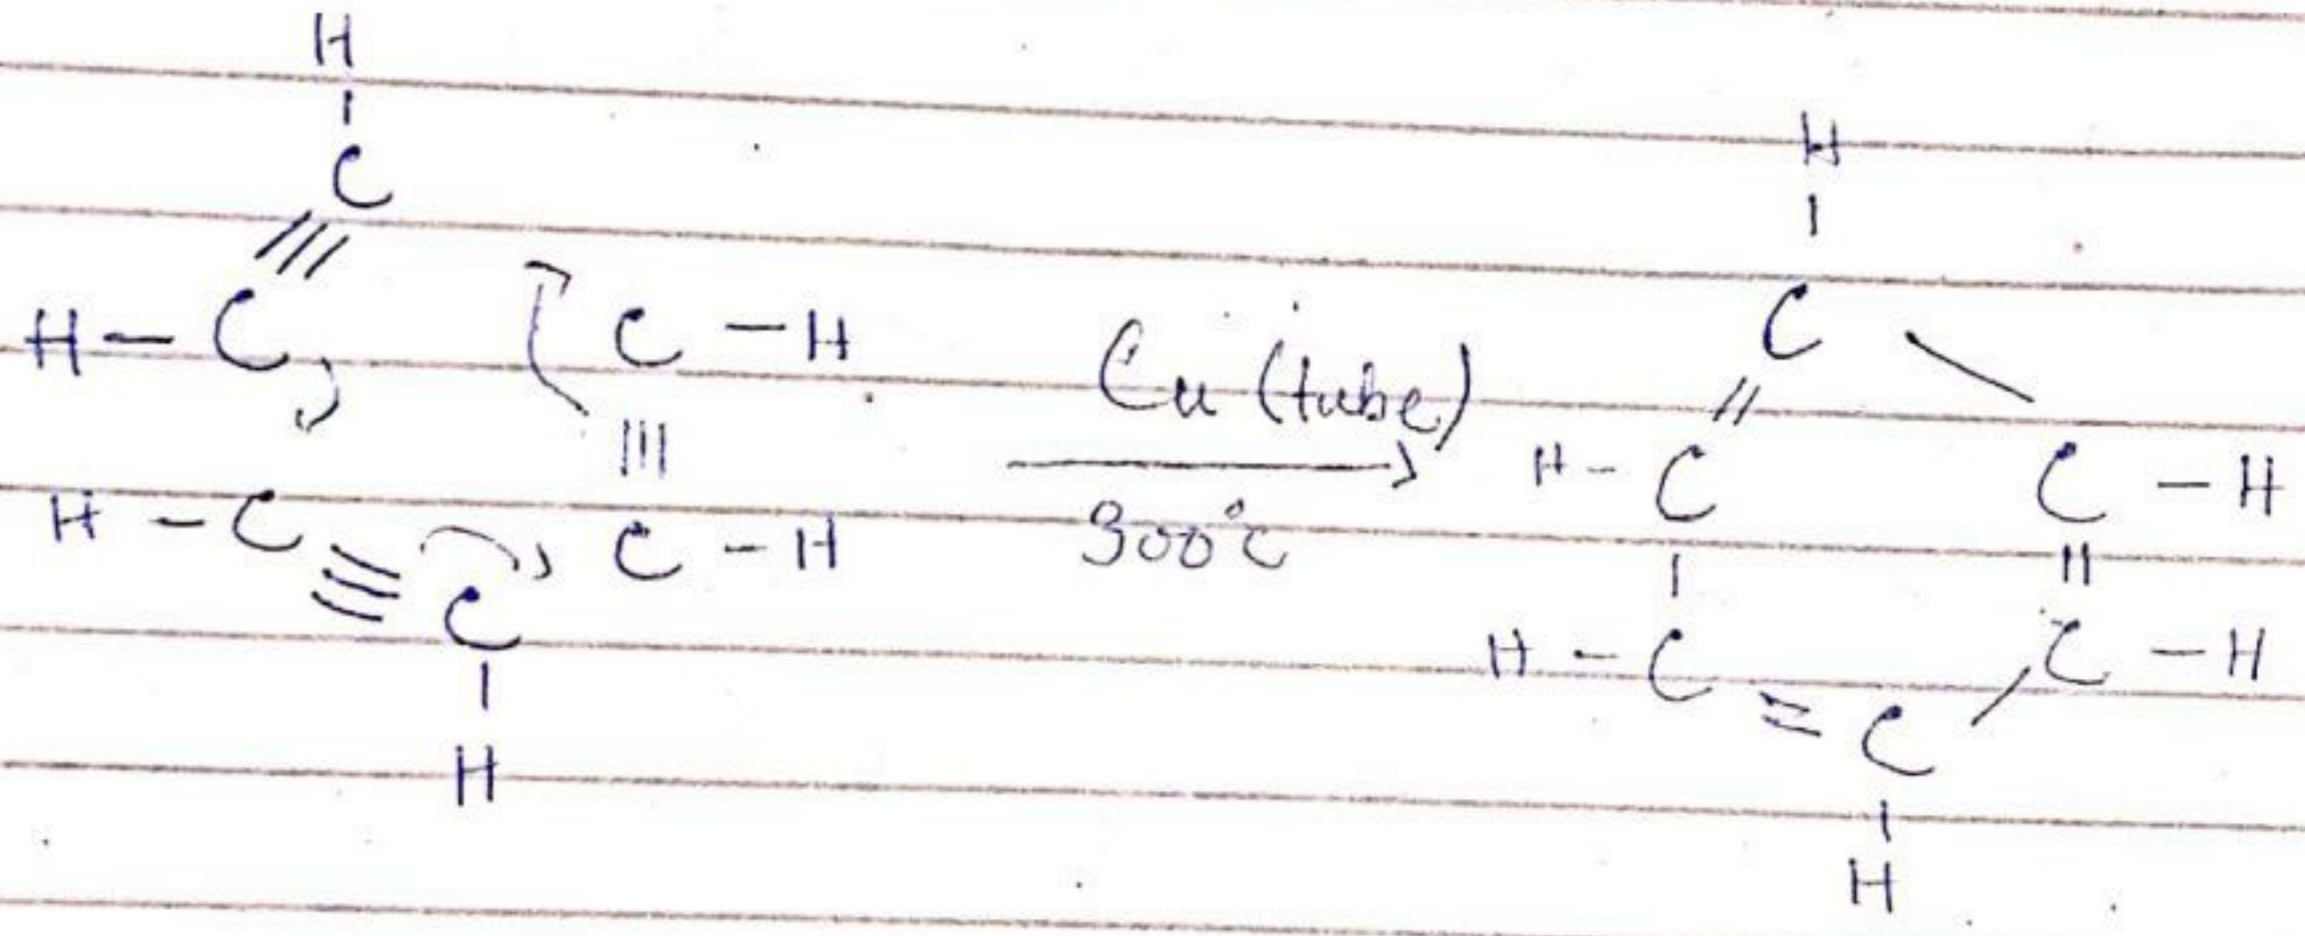 H
C
H - C ≡ C - H
H - C ≡ C - H
H
Cu (tube)
300°c
H
C
H - C C - H
H - C = C C - H
H